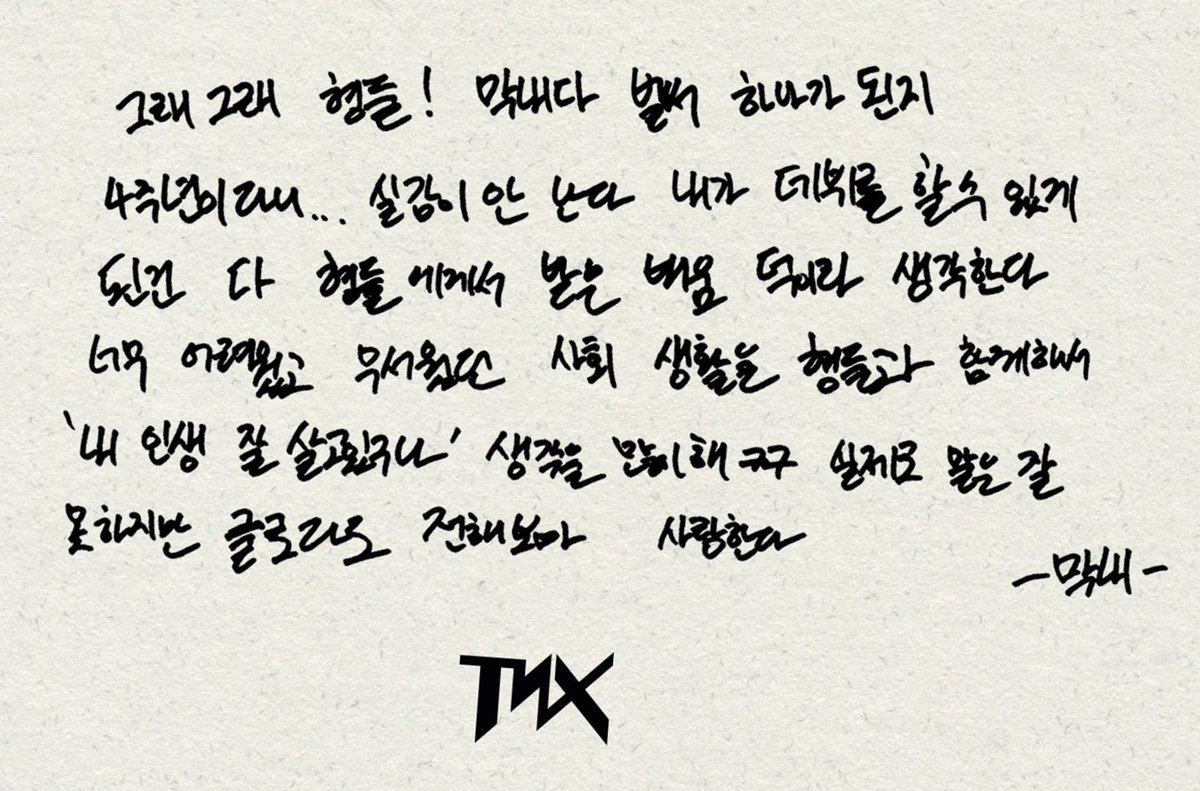 그래 그래 형들! 막내다 벌써 하나가 된지
4주년이라니... 실감이 안 난다 내가 데뷔를 할 수 있게
된건 다 형들에게서 받은 배움 덕이라 생각한다
너무 어려웠고 무서웠던 사회 생활을 형들과 함께해서
'내 인생 잘 살고있구나' 생각을 많이해 ㅋㅋ 실제로 말은 잘
못하지만 글로라도 전해보아 사랑한다
-막내-
TNX